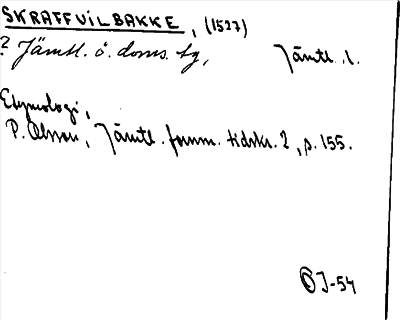 SKRAFFVILBAKKE, (1527)
? Jämtl. ö. doms. tg, Jämtl. l.
Etymologi,
P. Olsson, Jämtl. fornm. tidskr. 2, s. 155.
OJ-54